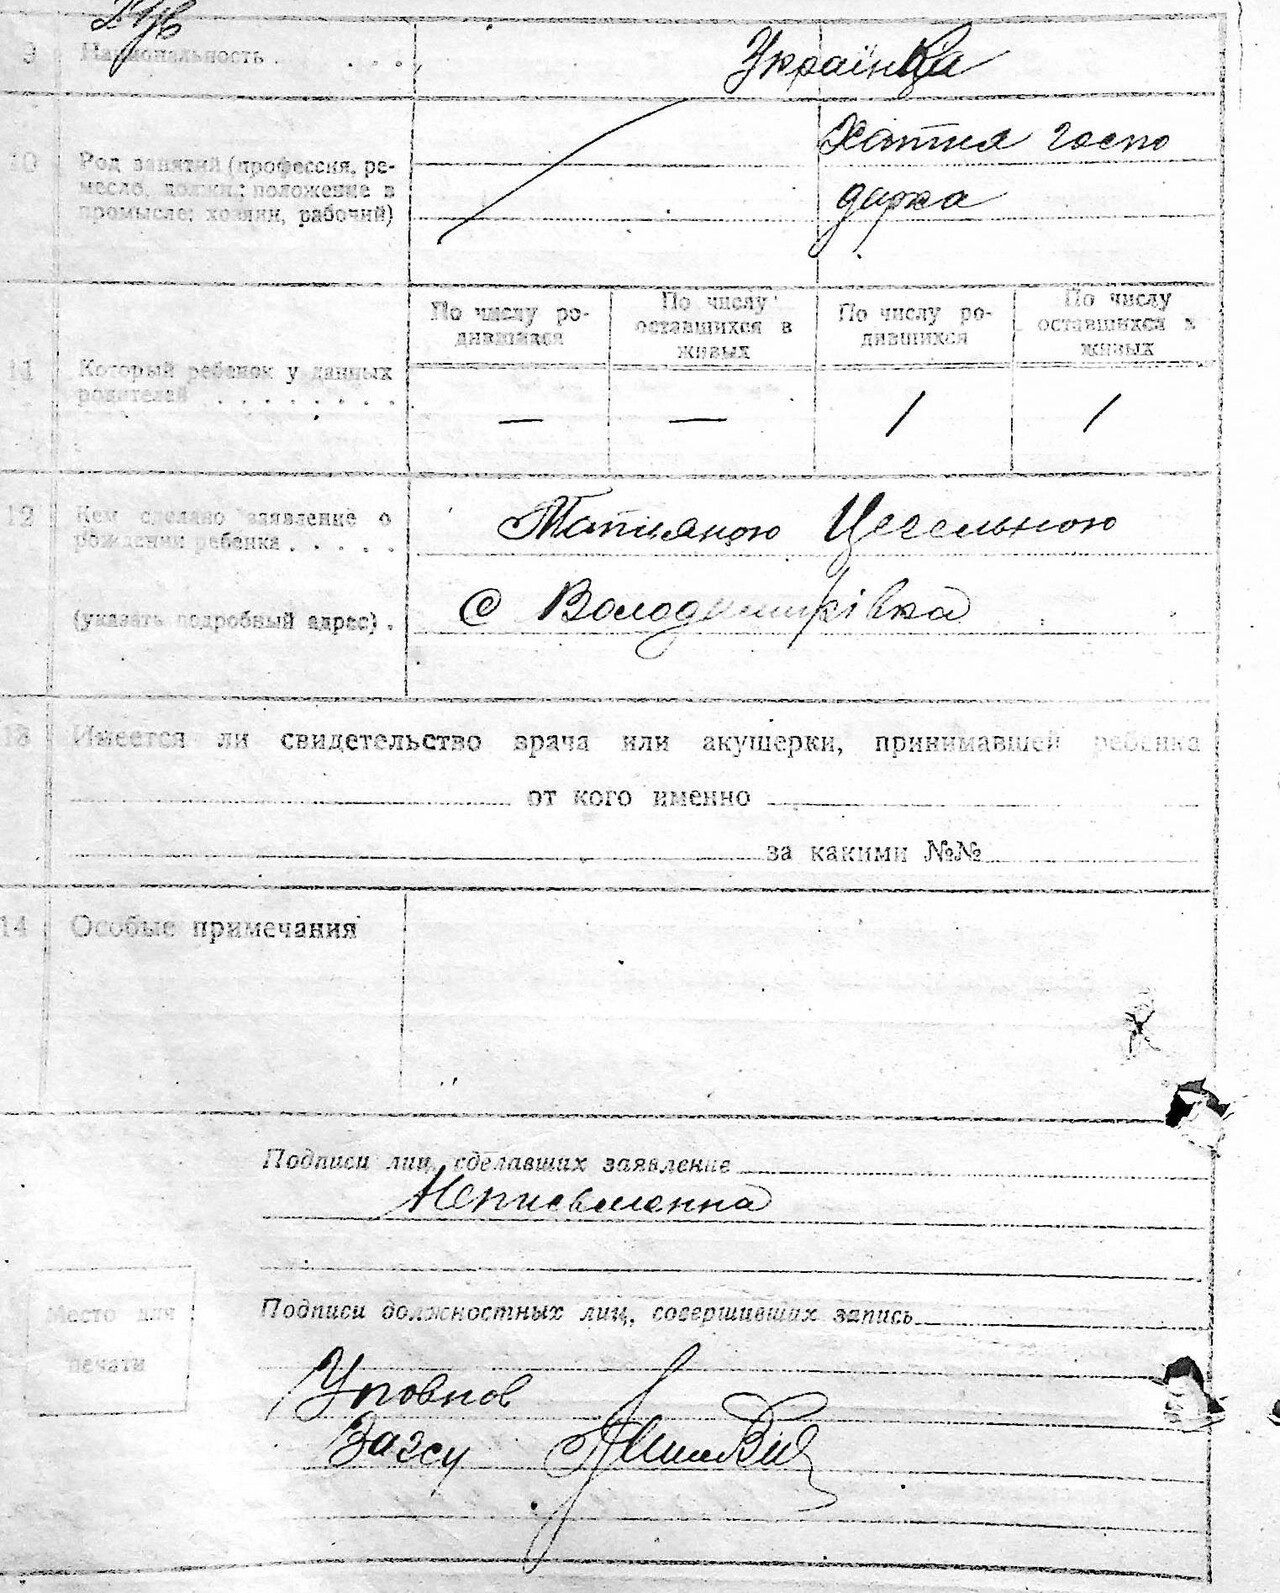 9 Национальность . . . . .
Українка
10 Род занятий (профессия, ре-
месло, должн.; положение в
промысле: хозяин, рабочий)
Хатня госпо
дарка
По числу ро-
дившихся
По числу
оставшихся в
живых
По числу ро-
дившихся
По числу
оставшихся в
живых
11 Который ребенок у данных
родителей . . . . . . . .
— — 1 1
12 Кем сделано заявление о
рождении ребенка . . . . .
(указать подробный адрес) .
Татьяною Цегельною
с Володимирівка
13 Имеется ли свидетельство врача или акушерки, принимавшей ребенка
от кого именно
за какими №№
14 Особые примечания
Подписи лиц, сделавших заявление
Неписьменна
Место для
печати
Подписи должностных лиц, совершивших запись
Уповнов
Загсу